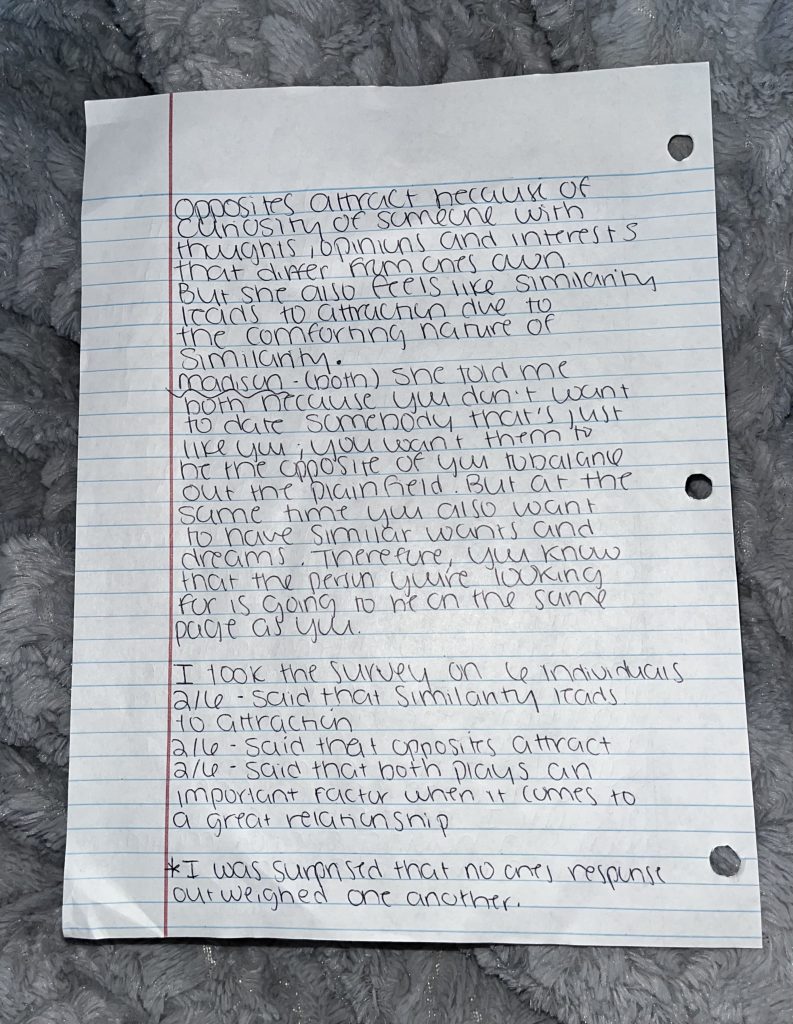 Opposites attract because of
curiosity of someone with
thoughts, opinions and interests
that differ from ones own
But she also feels like similarity
leads to attraction due to
the comforting nature of
similarity.
Madison - (both) She told me
both because you don't want
to date somebody that's just
like you; you want them to
be the opposite of you to balance
out the plainfield. But at the
same time you also want
to have similar wants and
dreams. Therefore, you know
that the person you're looking
for is going to be on the same
page as you.
I took the survey on 6 individuals
2/6 - said that similarity leads
to attraction
2/6 - said that opposits attract
2/6 - said that both plays an
important factor when it comes to
a great relationship
*I was surprised that no ones response
outweighed one another.